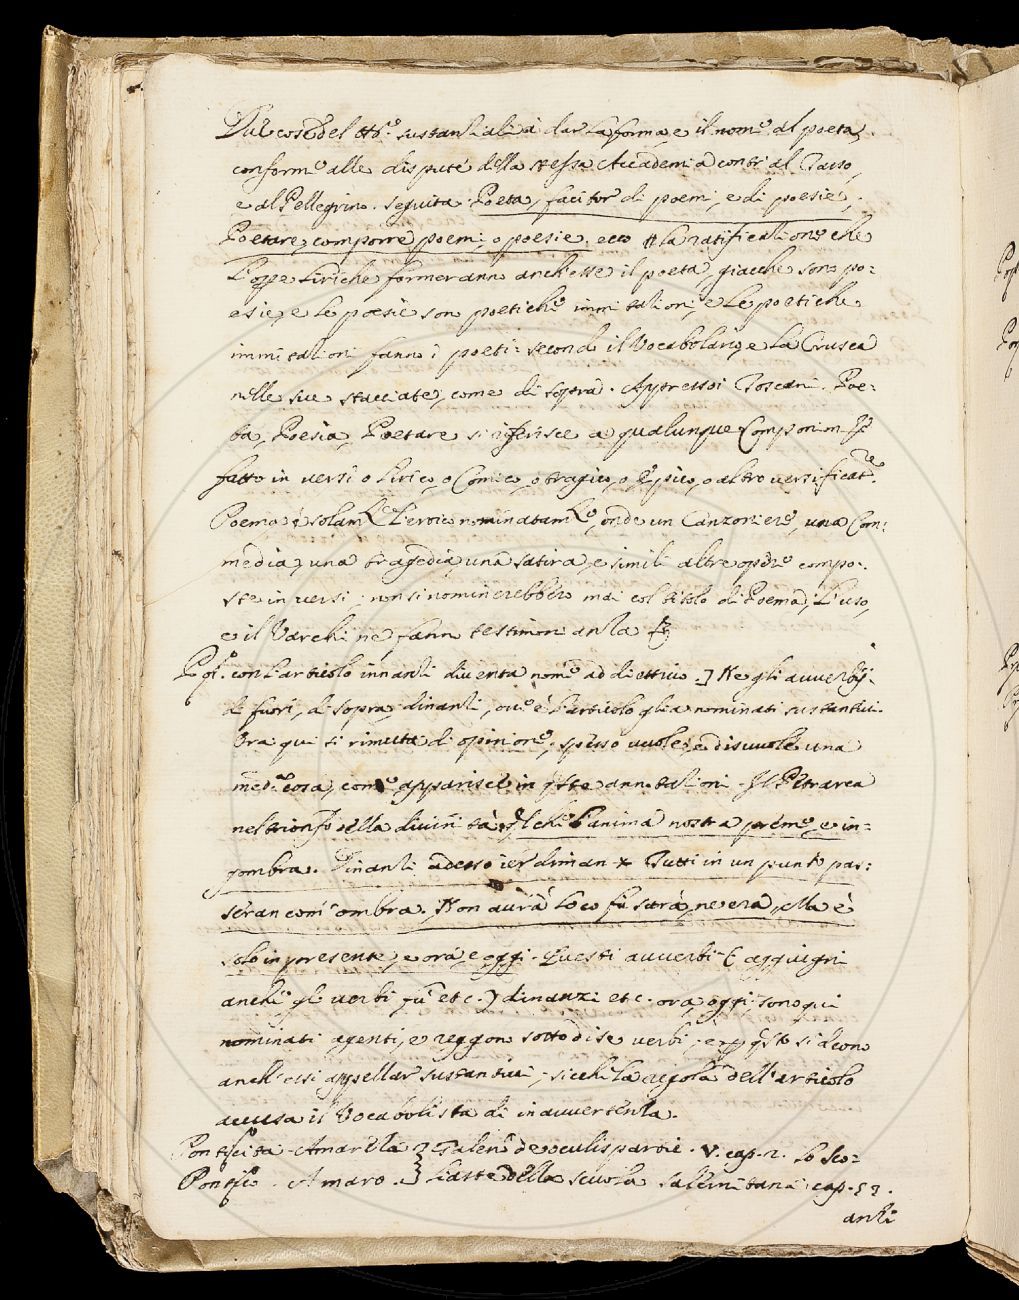 Due cose del sustanziali à dar la forma, e il nom.e al poeta,
conform.e alle dispute della stessa Accademia contr'al Tasso,
e al Pellegrino. Seguita Poeta, facitor di poemi, e di poesie,
Poetare, comporre poemi, o poesie. ecco la ratificatione che
l'opre liriche formeranno anch'esse il poeta, giacche sono po:
esie, e le poesie son poetiche immitationi, e le poetiche
immitationi fanno i poeti: secondo il Vocabolario, e la Crusca
nelle sue stacciate, come di sopra. Appresso i Toscani. Poe:
ta, Poesia, Poetare si riferisce a qualunque Componim.to
fatto in versi o lirico, o Comico, o tragico, o Epico, o altro versificat.re
Poema è solam.te l'eroico nominatam.te, onde un Canzoniere, una Com:
media, una tragedia, una satira, e simili altre opere compo:
ste in versi, non si nominerebbero mai col titolo di Poema, l'uso,
e il Varchi ne fanno testimonianza
con l'articolo innanzi diventa nome addiettivo.] Negli avverbij.
di fuori, di sopra, dinanzi, ov'è l'articolo gli à nominati sustantivi.
Ora qui si rimuta di opinione, spesso vuole, e disvuole una
med.a cosa, come apparisce in q.ste annotationi. Il Petrarca
nel trionfo della divinità, che l'anima nostra preme, e in=
gombra. Dinanzi adesso ier diman Tutti in un punto pas:
seran com'ombra. Non aurà loco fù sarà, ne era, Ma è
solo in presente, e ora, e oggi. Questi avverbi (e aggiugni
anche gli verbi fù etc.) dinanzi etc. ora, oggi, sono qui
nominati agenti, e reggono sotto di se verbi, e p q.sto si deono
anch'essi appellar sustantivi, sicche la regola dell'articolo
accusa il Vocabolista di inavvertenza.
Amarella Galen. de oculis partic. V. cap. 2. lo Sco:
Amaro. l'arte della scuola Salernitana cap.
anzi